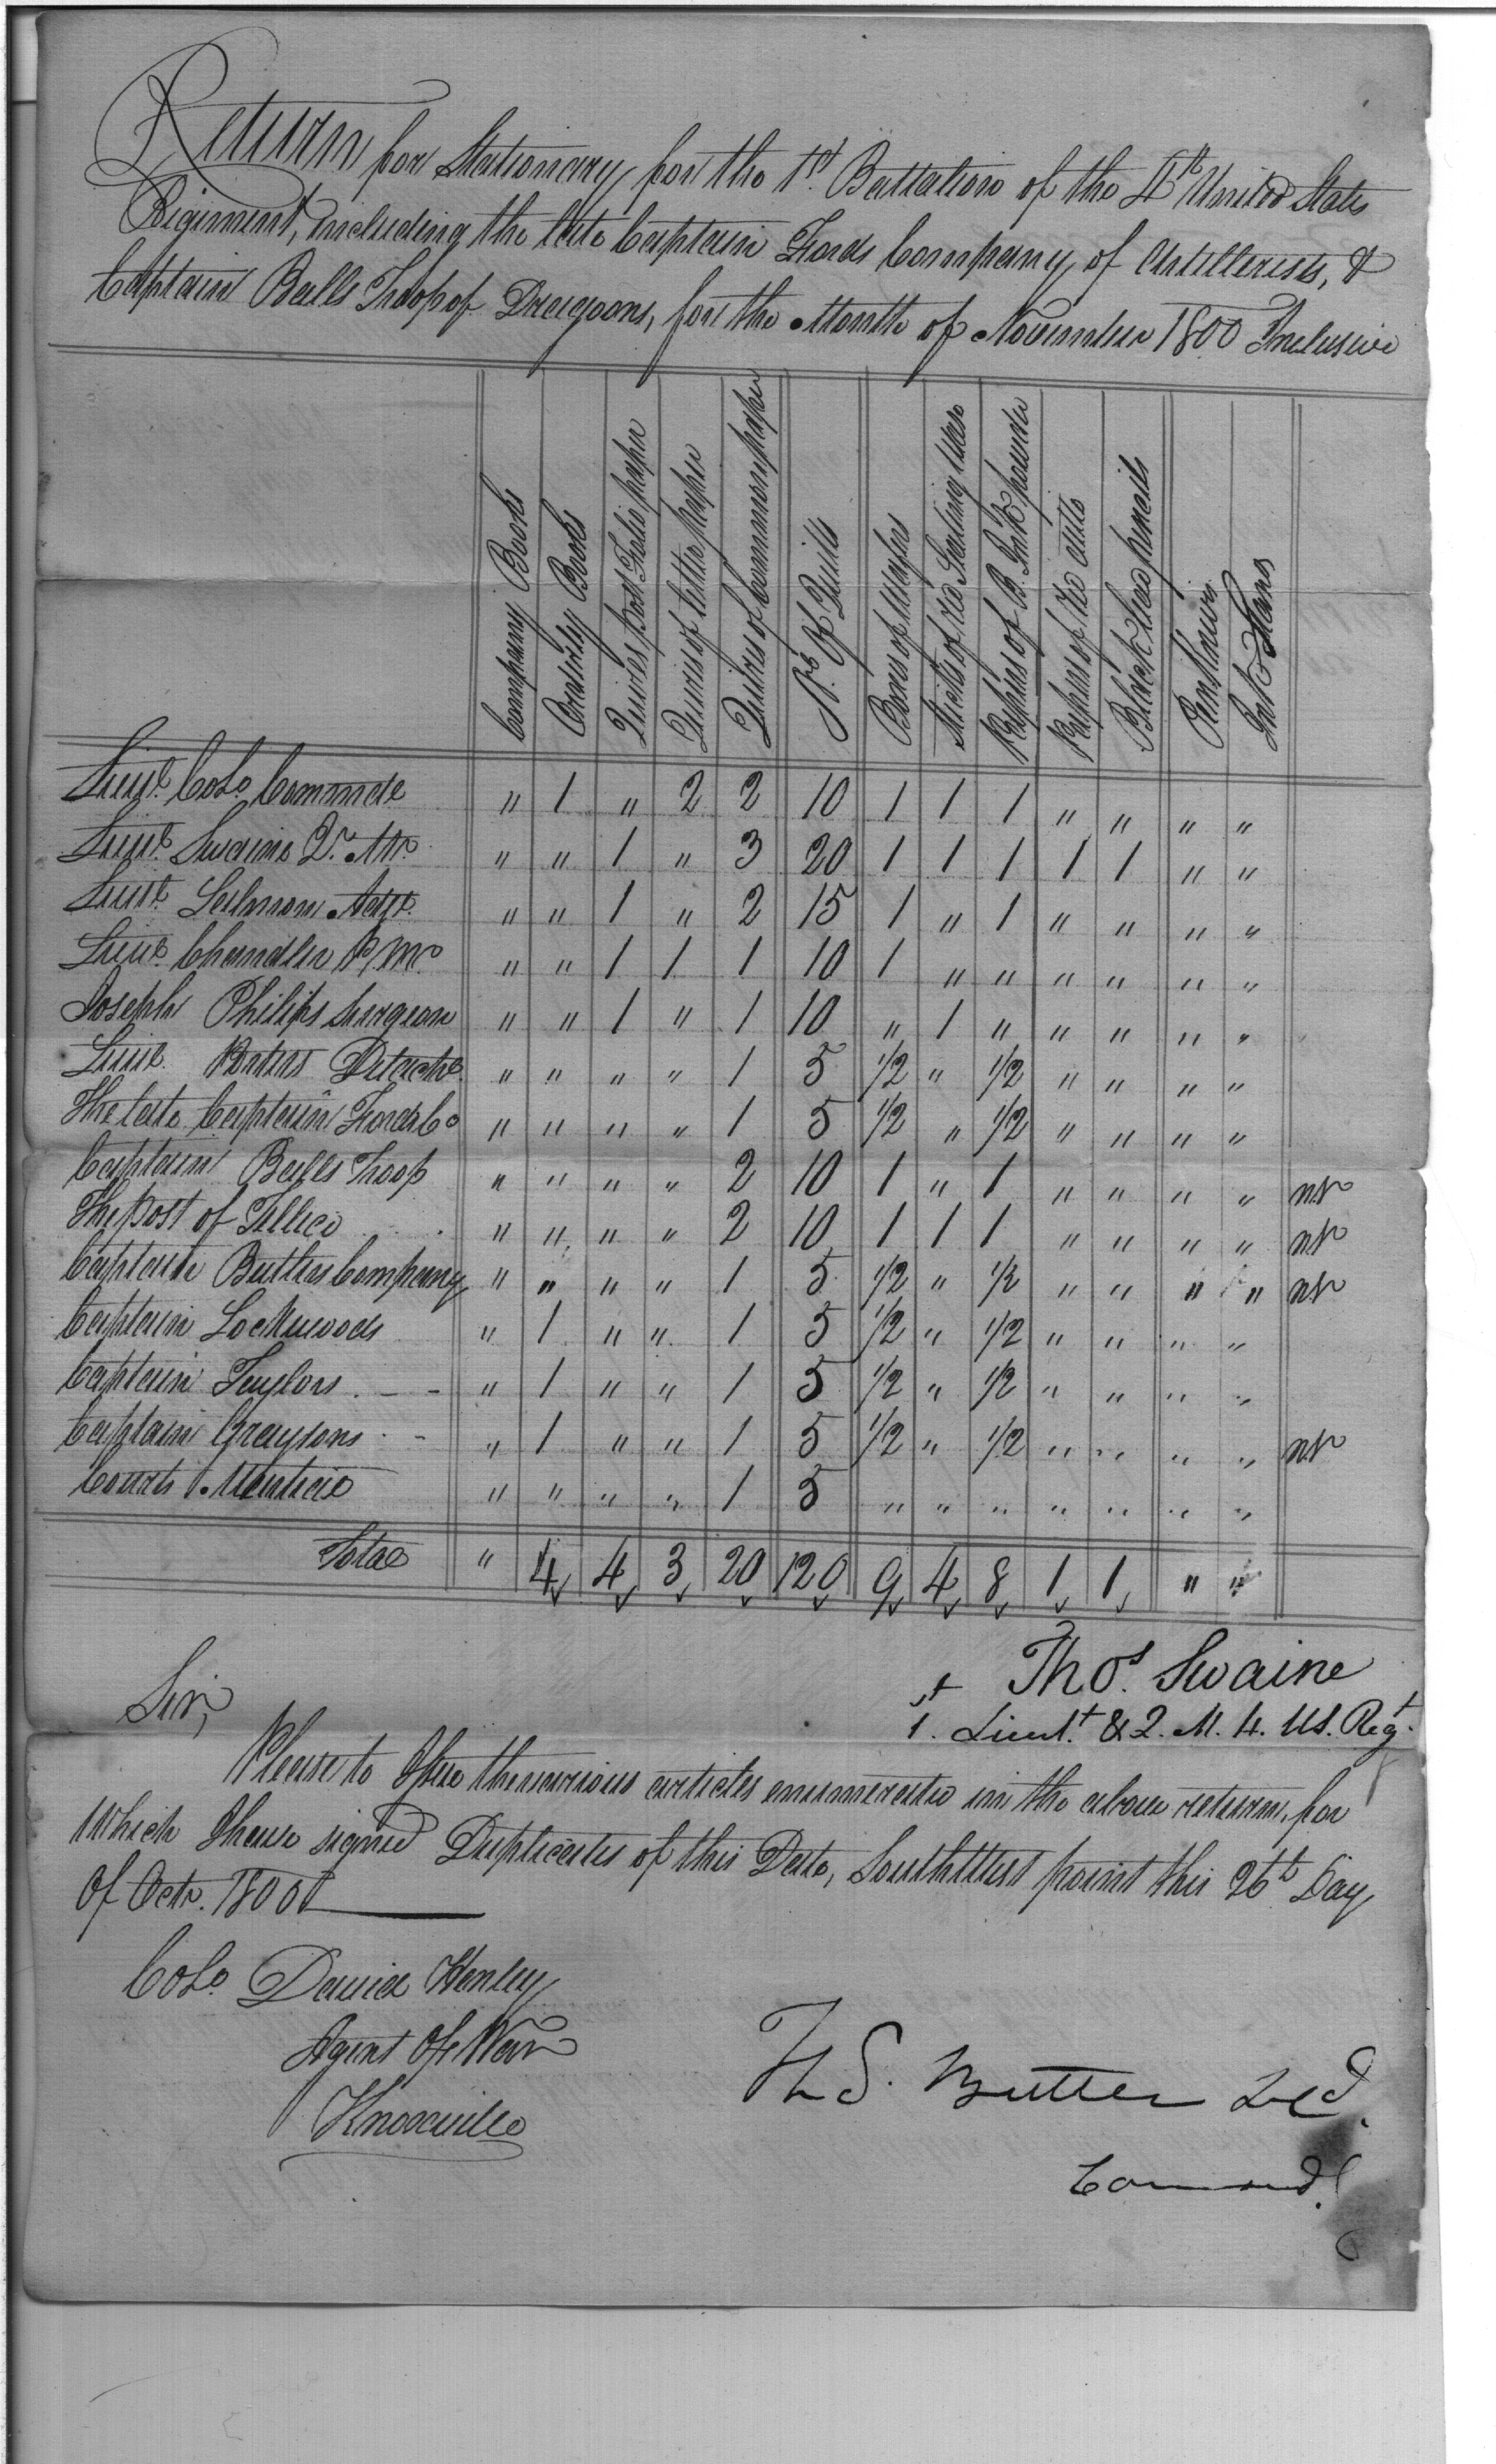 Return for Stationary for the 1st. Battalion of the 4th United States
Regiment, including the late Captain Fords Company of Artillerists, &
Captain Balls Troop of Dragoons, for the Month of November 1800 Inclusive
Company Books
Orderly Books
Quires post Folio paper
Quires of letter paper
Quires of Common paper
No. Of Quills
Boxes of Wafers
Sticks of red Sealing Wax
Papers of B. Ink powder
Papers of red ditto
Black lead pencils
Pen Knives
Ink Stans
Lieut. Colo. Commndt " 1 " 2 2 10 1 1 1 " " " "
Lieut. Swaine Q. Mr. " " 1 " 3 20 1 1 1 1 1 " "
Lieut. Salmon Adjt. " " 1 " 2 15 1 " 1 " " " "
Lieut. Chandler P. Mr. " " 1 1 1 10 1 " " " " " "
Joseph Philips Surgeon " " 1 " 1 10 " 1 " " " " "
Lieut. Peters Detacht. " " " " 1 5 1/2 " 1/2 " " " "
The late Captain Fords Co " " " " 1 5 1/2 " 1/2 " " " "
Captain Balls Troop " " " " 2 10 1 " 1 " " " "
The post of Tellico " " " " 2 10 1 1 1 " " " "
Captain Butlers Company " " " " 1 5 1/2 " 1/2 " " " "
Captain Lockwoods " 1 " " 1 5 1/2 " 1/2 " " " "
Captain Taylors . - - " 1 " " 1 5 1/2 " 1/2 " " " "
Captain Graysons - - " 1 " " 1 5 1/2 " 1/2 " " " "
Courts Martial " " " " 1 5 " " " " " " "
Total " 4 4 3 20 120 9 4 8 1 1 " "
Thos. Swaine
1st. Lieut. & Q. M. 4. US. Regt.
Sir,
Please to Issue the various articles enumerated in the above return, for
Which I have signed Duplicates of this Date, South West point this 26th Day
Of Octr. 1800
Colo. David Henley
Agent Of War
Knoxville
Th S. Butler
Command.